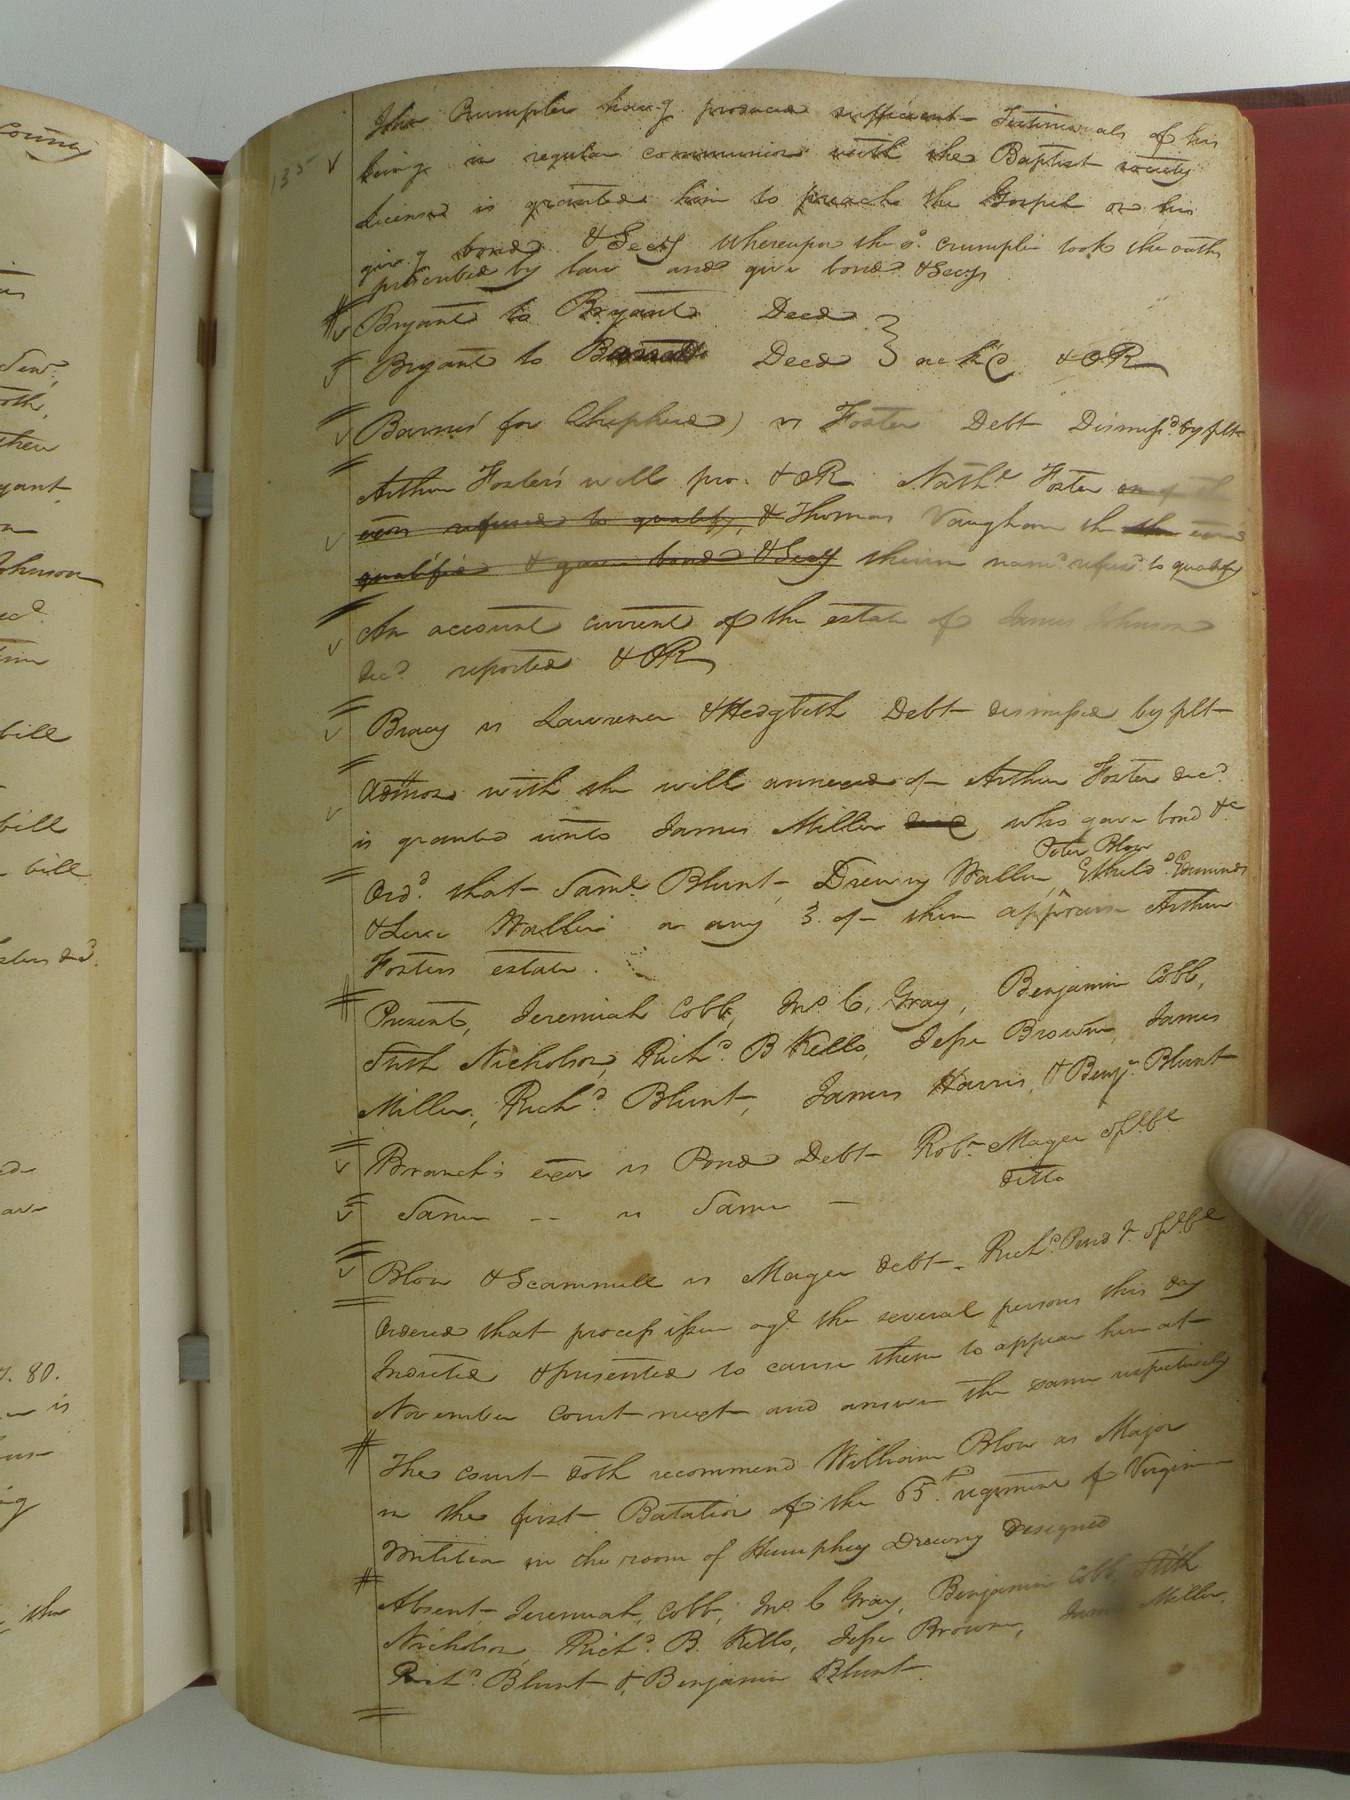 County
135
John Crumpler havg. produced sufficient Testimonials of his
being in regular communion with the Baptist society
License is granted him to preach the Gospel on his
giv.g bond & Secy whereupon the s.d crumpler took the oath
prescribed by law and give bond & Secy
Bryant to Bryant Deed
Bryant to Deed } ackd & OR
Barnes (for Shepherd) vs Foster Debt Dismissd. by plt
Arthur Foster's will pro. & OR Nathl Foster
exors refused to qualify, & Thomas Vaughan the exors
qualified & gave bond & Secy therein namd. refusd. to qualify
An account current of the estate of James Johnson
decd. reported & OR
Bracy vs Lawrence & Hedgbeth Debt dismissed by plt
Admon with the will annexed of Arthur Foster decd.
is granted unto James Miller who gave bond &c
Peter Blow
Ordd. that Saml. Blunt, Drewry Waller, Etheld. Edmunds
& Levi Waller or any 3 of them appraise Arthur
Fosters estate.
Present, Jeremiah Cobb, Jno. C. Gray, Benjamin Cobb,
Stith Nicholson, Richd. B Kello, Jesse Browne, James
Miller, Richd. Blunt, James Harris, & Benjn. Blunt
Branch's exor vs Pond Debt Robt. Mager Spl. bl
Same -- vs Same — ditto
Blow & Scammell vs Mager debt - Richd. Pond Jr. Spl. bl
Ordered that process issue agt. the several persons this day
Indicted & presented to cause them to appear here at
November Court next and answer the same respectively
The court doth recommend William Blow as Major
in the first Batalion of the 65th. regiment of Virginia
militia in the room of Humphrey Drewry resigned
Absent Jeremiah Cobb, Jno. C Gray, Benjamin Cobb, Stith
Nicholson, Richd. B. Kello, Jesse Browne, James Miller,
Richd. Blunt & Benjamin Blunt